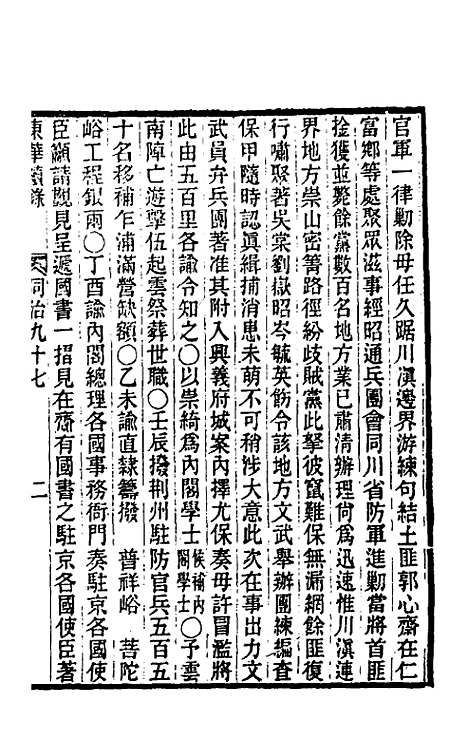 官軍一律勦除毋任久踞川滇邊界游練句結土匪郭心齋在仁
富鄉等處聚眾滋事經昭通兵團會同川省防軍進勦當將首匪
捦獲並斃餘黨數百名地方業已肅清辦理尙爲迅速惟川滇連
界地方崇山密箐路徑紛歧賊黨此拏彼竄難保無漏網餘匪復
行嘯聚著吳棠劉嶽昭岑毓英飭令該地方文武舉辦團練編查
保甲隨時認眞緝捕消患未萌不可稍涉大意此次在事出力文
武員弁兵團著准其附入興義府城案內擇尤保奏毋許冒濫將
此由五百里各諭令知之〇以崇綺爲內閣學士候補內閣學士〇予雲
南陣亡遊擊伍起雲祭葬世職〇壬辰撥荆州駐防官兵五百五
十名移補乍浦滿營缺額〇乙未諭直隸籌撥 普祥峪 菩陀
峪工程銀兩〇丁酉諭內閣總理各國事務衙門奏駐京各國使
臣籲請覲見呈遞國書一摺見在齎有國書之駐京各國使臣著
東華續錄 同治九十七 二